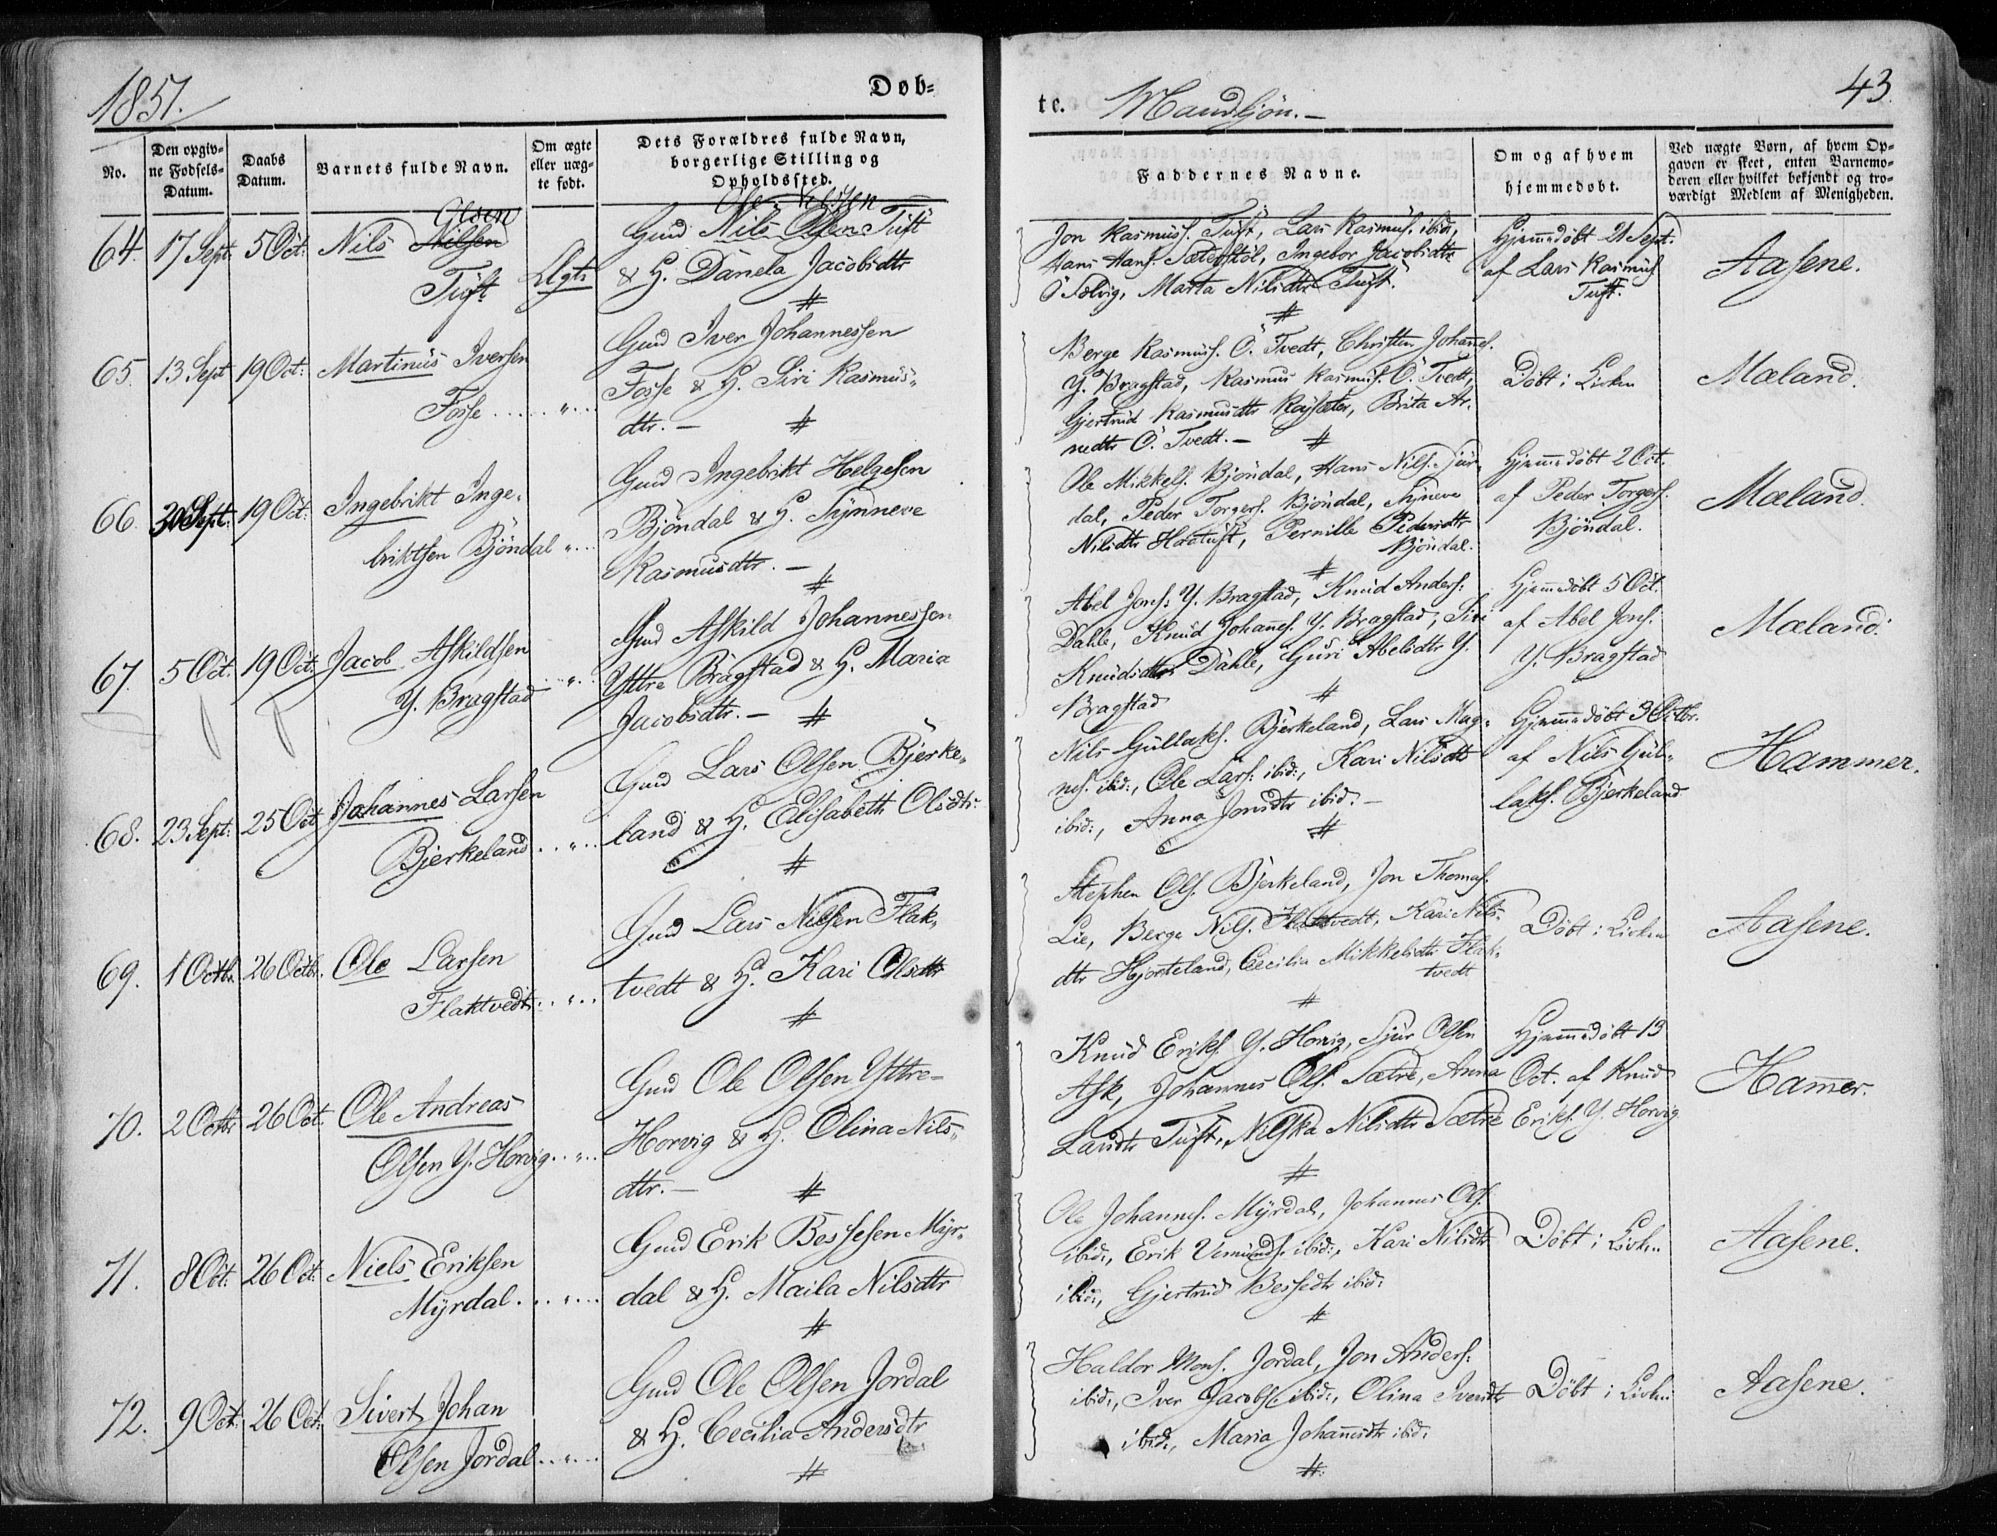 1851.
Døb-
te.
Mandkjøn. –
43.
No.
Den opgiv-
ne Fødsels-
Datum.
Daabs
Datum.
Barnets fulde Navn.
Om ægte
eller uæg-
te født.
Dets Forældres fulde Navn,
borgerlige Stilling og
Opholdssted.
Faddernes Navne.
Om og af hvem
hjemmedøbt.
Ved uægte Børn, af hvem Op-
gaven er skeet, enten Barnemo-
deren eller hvilket bekjendt og tro-
værdigt Medlem af Menigheden.
64. 17 Sept. 5 Oct.
Olsen
Nils Nilsen
Tuft
Ægte
Ole Nilsen
Gmd Nils Olsen Tuft
& H. Danela Jacobsdtr
#
Jon Rasmuss. Tuft, Lars Rasmuss. ibid.,
Hans Hans. Sæterstøl, Ingebor Jacobsdtr
Ö Tolvig, Marta Nilsdtr Tuft.
#
Hjemmedöbt 21 Sept.
af Lars Rasmuss.
Tuft.
Aasene.
65. 13 Sept 19 Oct.
Martinus Iversen
Fosse ..... " ...
Gmd Iver Johannessen
Fosse & H. Siri Rasmus-
dtr. – #
Berge Rasmuss. Ö. Tvedt, Christen Johans.
Y. Bragstad, Rasmus Rasmuss. Ö. Tvedt,
Gjertrud Rasmusdtr Røysæter, Brita Ar-
nedtr Ö. Tvedt. – #
Döbt i Kirken
Mæland.
66. 30 Sept. 19 Oct.
Ingebrikt Inge-
briktsen Bjöndal " ...
Gmd Ingebrikt Helgesen
Bjöndal & H. Synneve
Rasmusdtr. –
#
Ole Mikkels. Bjöndal, Hans Nils. Sjur-
dal, Peder Torgers. Bjöndal, Synneve
Nilsdtr Haatuft, Pernille Pedersdtr
Bjöndal.
#
Hjemmedöbt 2 Oct.
af Peder Torgers.
Bjöndal.
Mæland
67. 5 Oct. 19 Oct.
Jacob Askildsen
Y. Bragstad ... " ..
Gmd Askild Johannessen
Yttre Bragstad & H. Maria
Jacobsdtr. – #
Abel Jons. Y. Bragstad, Knud Anders.
Dahle, Knud Johans. Y. Bragstad, Siri
Knudsdtr Dahle, Guri Abelsdtr Y.
Bragstad
#
Hjemmedöbt 5 Oct.
af Abel Jons.
Y. Bragstad
Mæland.
68. 23 Sept. 25 Oct
Johannes Larsen
Bjerkeland .. " ..
Gmd Lars Olsen Bjerke-
land & H. Elisabeth Olsdtr
#
Nils Gullaks. Bjerkeland, Lars Mag-
nes. ibid., Ole Lars. ibid., Kari Nilsdtr
ibid., Anna Jonsdtr ibid. –
#
Hjemmedöbt 3 Octbr.
af Nils Gul-
laks. Bjerkeland
Hammer.
69. 1 Octbr. 26 Octbr.
Ole Larsen
Flaktvedt .. " ...
Gmd Lars Nilsen Flak-
tvedt & H. Kari Olsdtr
#
Stephen Ols. Bjerkeland, Jon Thomas.
Lie, Berge Nils. Flaktvedt, Kari Nils-
dtr Hjorteland, Cecilia Mikkelsdtr Flak-
tvedt
#
Döbt i Kirken
Aasene.
70. 2 Octbr 26 Oct.
Ole Andreas
Olsen Y. Horvig .. " ..
Gmd Ole Olsen Yttre-
Horvig & H. Olina Nils-
dtr. – #
Knud Eriks. Y. Horvig, Sjur Olsen
Ask, Johannes Ols. Sætre, Anna
Larsdtr Tuft, Nilska Nilsdtr Sætre
#
Hjemmedöbt 13
Oct. af Knud
Eriks. Y. Horvig
Hammer.
71. 8 Oct. 26 Oct.
Niels Eriksen
Myrdal ... " ...
Gmd Erik Bessesen Myr-
dal & H. Maila Nilsdtr
#
Ole Johannes. Myrdal, Johannes Ols.
ibid., Erik Vemunds. ibid., Kari Nilsdtr
ibid., Gjertrud Bessedtr ibid.
#
Döbt i Kirken
Aasene.
72. 9 Oct. 26 Oct.
Sivert Johan
Olsen Jordal .. " ...
Gmd Ole Olsen Jordal
& H. Cecilia Andersdtr
#
Haldor Mons. Jordal, Jon Anders.
ibid., Iver Jacobs. ibid., Olina Iversdtr
ibid., Maria Johannesdtr ibid.
#
Döbt i Kirken
Aasene.